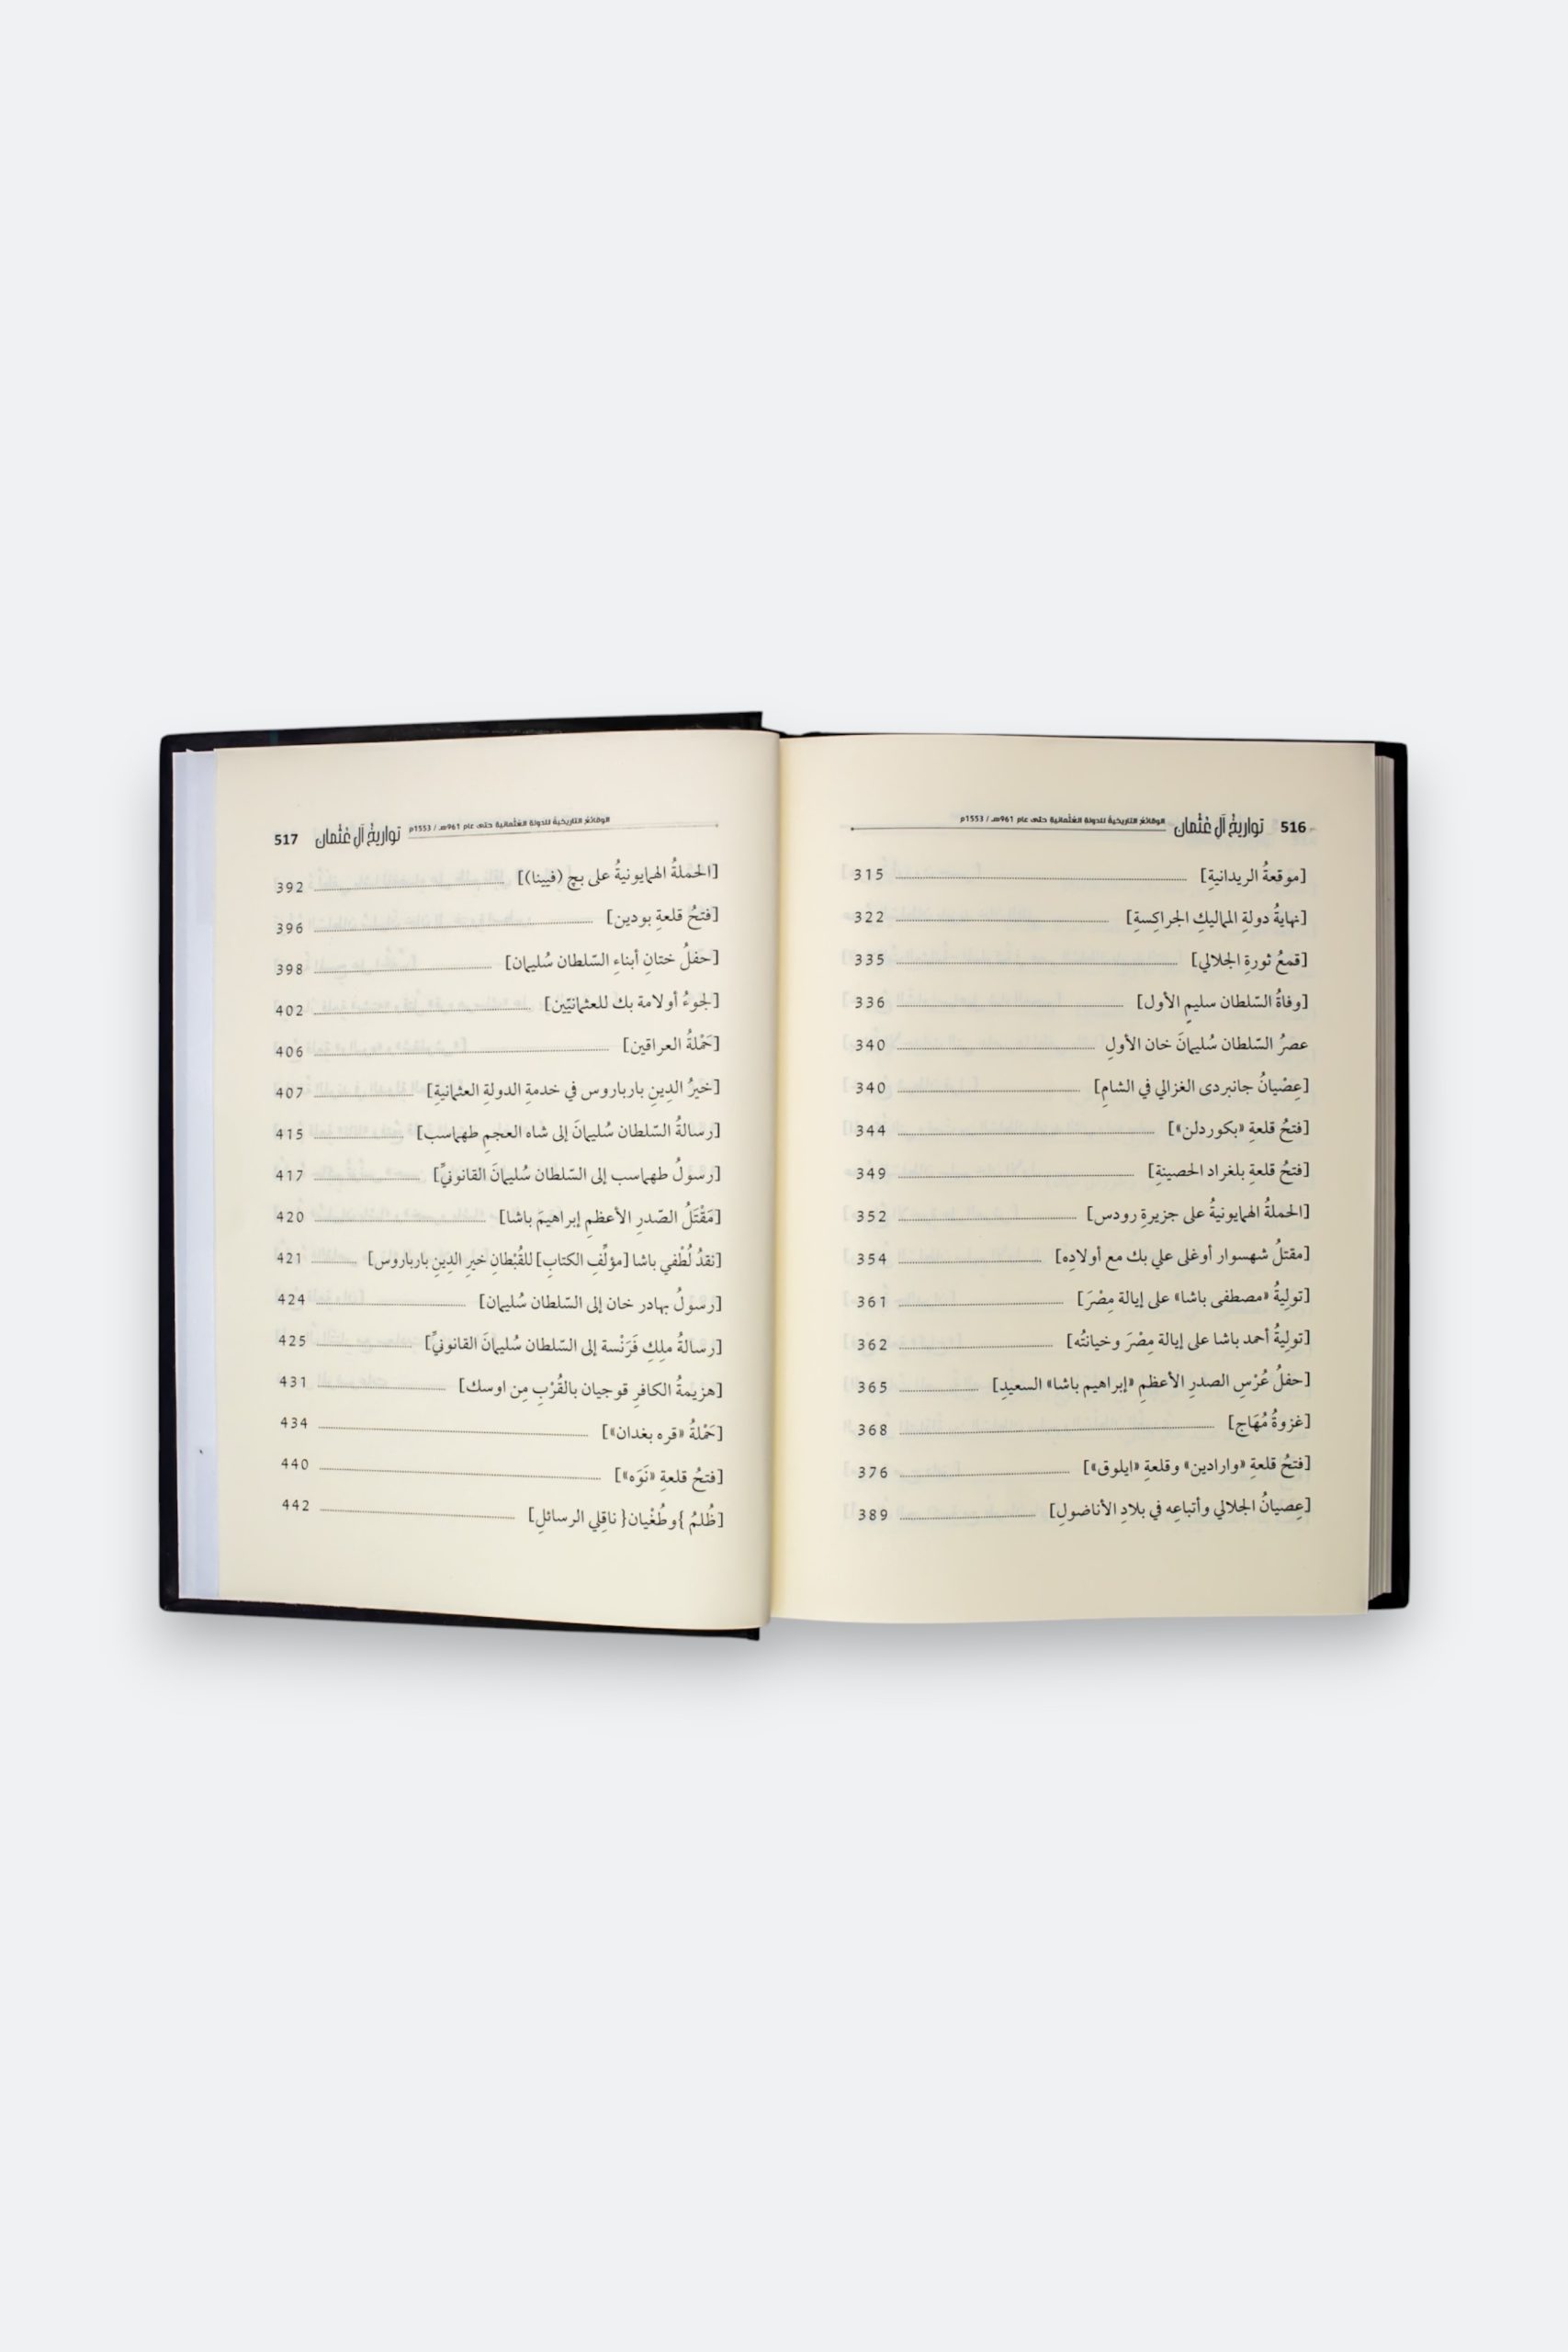 516 تواريخُ آلِ عُثْمان الوقائعُ التاريخيةُ للدولة العُثْمانية حتى عام 961هـ / 1553م
[موقعةُ الريدانيةِ] 315
[نهايةُ دولةِ المماليكِ الجراكِسةِ] 322
[قمعُ ثورةِ الجلالي] 335
[وفاةُ السّلطان سليمٍ الأول] 336
عصرُ السّلطان سُليمانَ خان الأولِ 340
[عِصْيانُ جانبردى الغزالي في الشامِ] 340
[فتحُ قلعةِ «بكوردلن»] 344
[فتحُ قلعةِ بلغراد الحصينةِ] 349
[الحملةُ الهمايونيةُ على جزيرةِ رودس] 352
[مقتلُ شهسوار أوغلى علي بك مع أولادِه] 354
[توليةُ «مصطفى باشا» على إيالة مِصْرَ] 361
[توليةُ أحمد باشا على إيالة مِصْرَ وخيانتُه] 362
[حفلُ عُرْسِ الصدرِ الأعظمِ «إبراهيم باشا» السعيدِ] 365
[غزوةُ مُهَاج] 368
[فتحُ قلعةِ «وارادين» وقلعةِ «ايلوق»] 376
[عِصيانُ الجلالي وأتباعِه في بلادِ الأناضولِ] 389
517 تواريخُ آلِ عُثْمان الوقائعُ التاريخيةُ للدولة العُثْمانية حتى عام 961هـ / 1553م
[الحملةُ الهمايونيةُ على بچ (فيينا)] 392
[فتحُ قلعةِ بودين] 396
[حفلُ ختانِ أبناءِ السّلطان سُليمان] 398
[لجوءُ أولامة بك للعثمانيّين] 402
[حَمْلةُ العراقين] 406
[خيرُ الدِينِ بارباروس في خدمةِ الدولةِ العثمانيةِ] 407
[رسالةُ السّلطان سُليمانَ إلى شاه العجمِ طهماسب] 415
[رسولُ طهماسب إلى السّلطان سُليمانَ القانونيِّ] 417
[مَقْتَلُ الصّدرِ الأعظمِ إبراهيمَ باشا] 420
[نقدُ لُطْفي باشا [مؤلِّفِ الكتابِ] للقُبْطانِ خيرِ الدِينِ بارباروس] 421
[رسولُ بهادر خان إلى السّلطان سُليمان] 424
[رسالةُ ملِكِ فَرَنْسة إلى السّلطان سُليمانَ القانونيِّ] 425
[هزيمةُ الكافرِ قوجيان بالقُرْبِ مِن اوسك] 431
[حَمْلةُ «قره بغدان»] 434
[فتحُ قلعةِ «نَوَه»] 440
[ظُلمُ }وطُغْيان{ ناقِلي الرسائلِ] 442